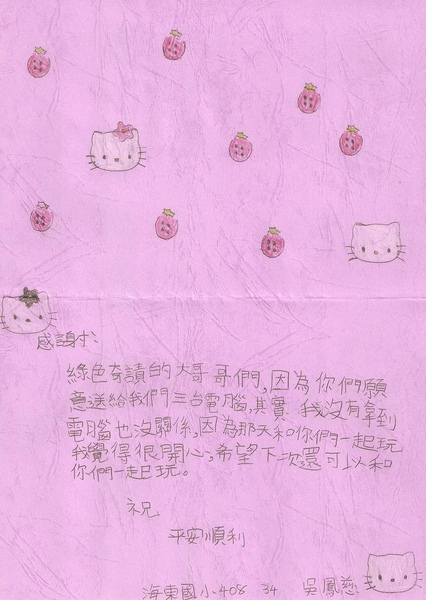 感謝忱:
綠色奇蹟的大哥哥們,因為你們願
意送給我們三台電腦,其實我沒有拿到
電腦也沒關係,因為那天和你們一起玩
我覺得很開心,希望下次還可以和
你們一起玩。
祝
平安順利
海東國小408 34 吳鳳慈